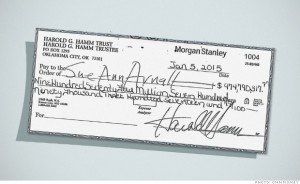 HAROLD G. HAMM TRUST
HAROLD G. HAMM TRUSTEE
OKLAHOMA CITY, OK
Morgan Stanley
1004
Jan 5, 2015
Date
Pay to the
Order of Sue Ann Arnall $ 974,790,317.
Nine Hundred Seventy Four Million Seven Hundred
Ninety Thousand Three Hundred Seventeen and /100
For Harold Hamm